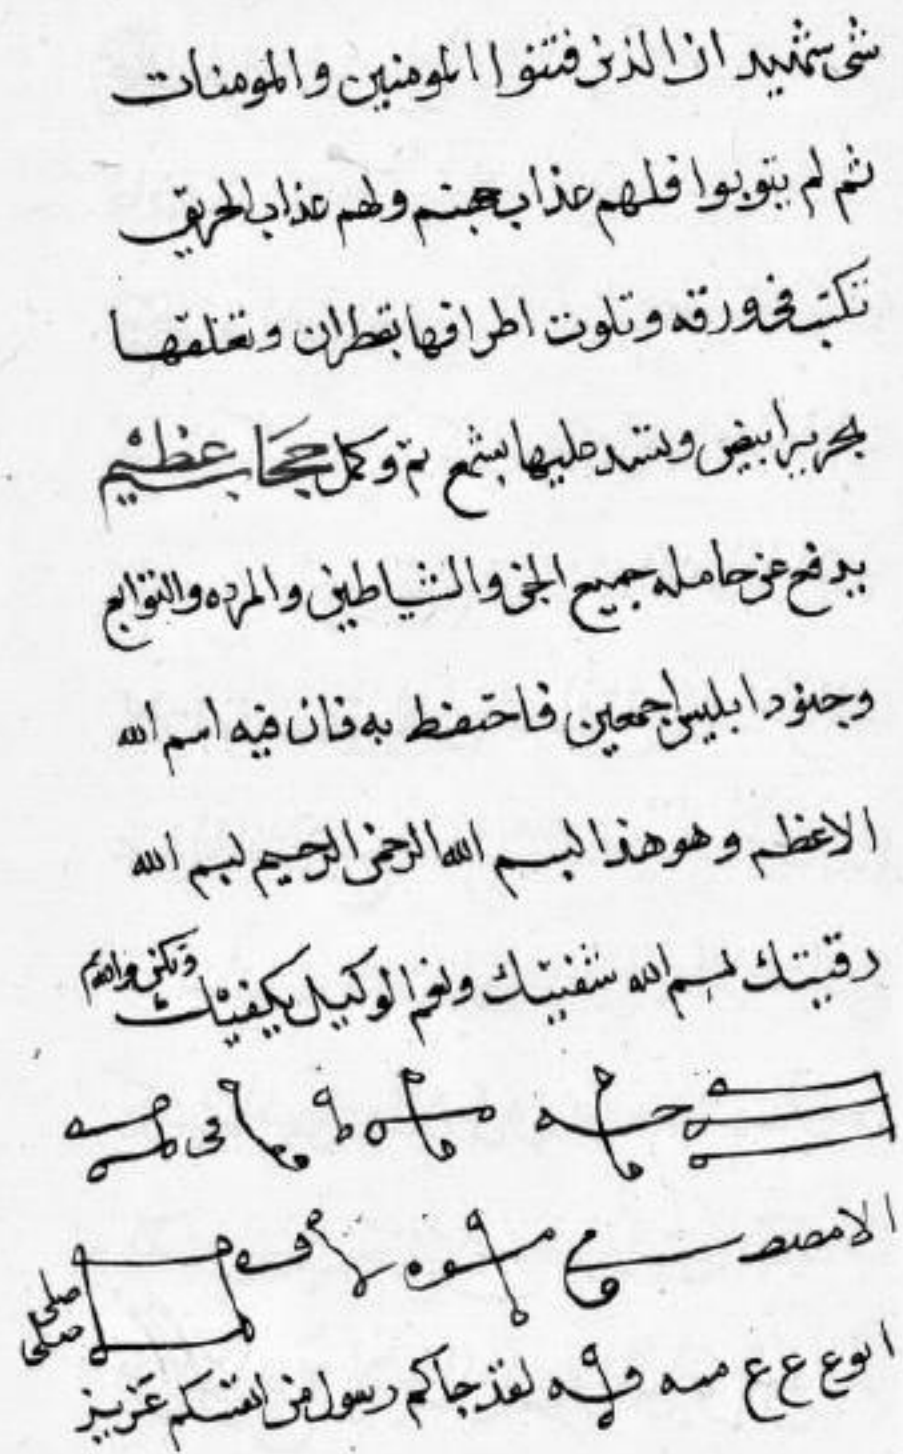 شى شهيد ان الذين فتنوا المومنين والمومنات
ثم لم يتوبوا فلهم عذاب جهنم ولهم عذاب الحريق
تكتب فى ورقه وتلوت اطرافها بقطران وتغلقها
بحرير ابيض وتشد عليها بشمع تم وكمل حجاب عظيم
يدفع عن حامله جميع الجن والشياطين والمرده والتوابع
وجنود ابليس اجمعين فاحتفظ به فان فيه اسم الله
الاعظم وهو هذا بسم الله الرحمن الرحيم بسم الله
رقيتك بسم الله شفيتك ونعم الوكيل يكفيك
لقد جاكم رسول من انفسكم عزيز